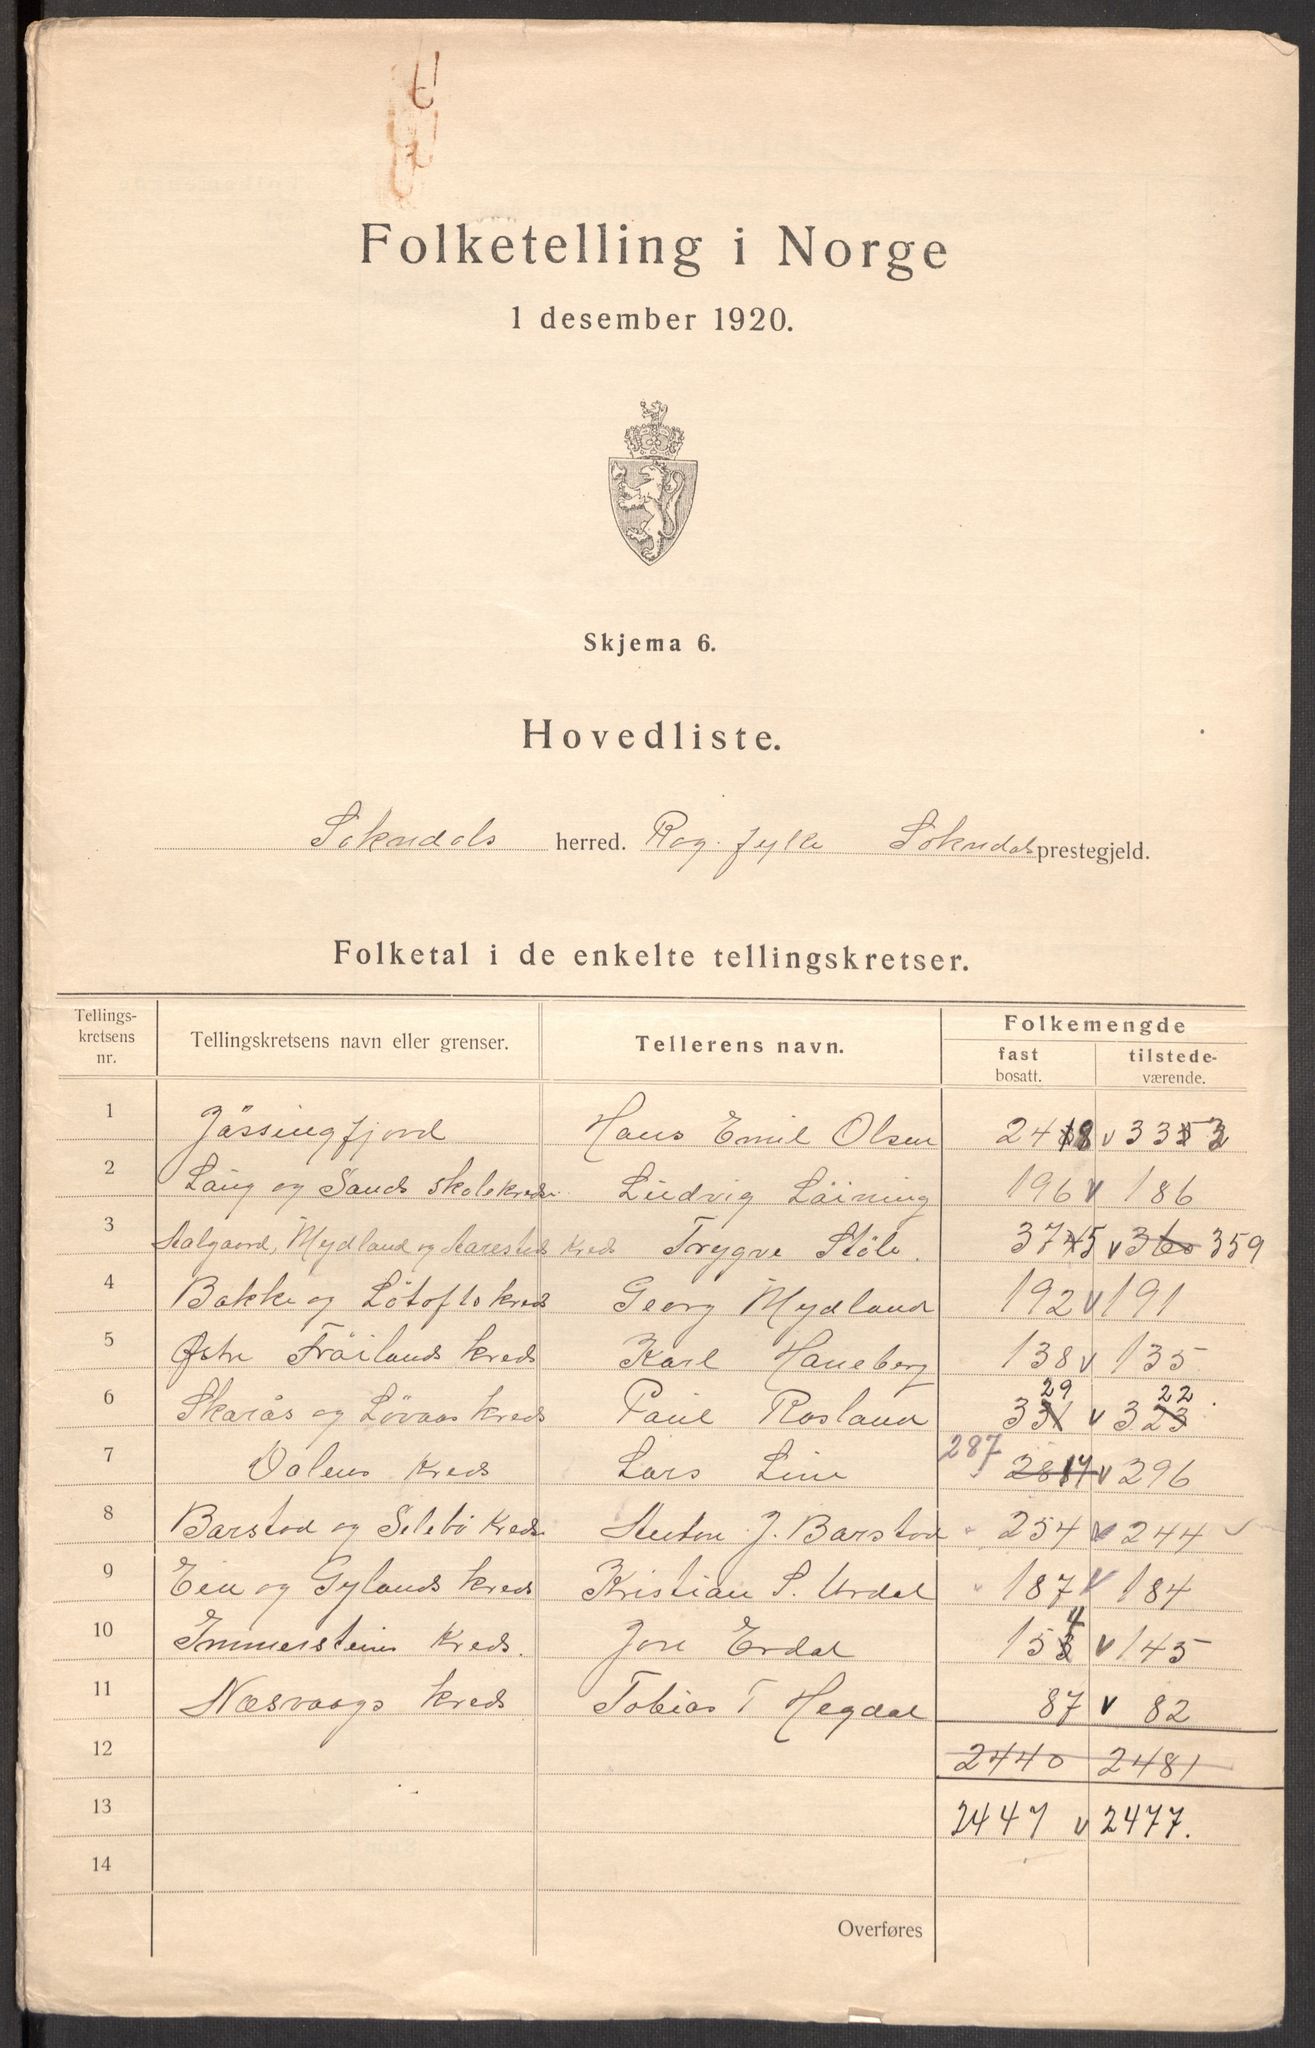 Folketelling i Norge
1 desember 1920.
Skjema 6.
Hovedliste.
Sokndals herred. Rog. fylke Sokndals prestegjeld.
Folketal i de enkelte tellingskretser.
Tellings-kretsens nr. Tellingskretsens navn eller grenser. Tellerens navn. Folkemengde
fast bosatt. tilstede-værende.
1 Jössingfjord Hans Emil Olsen 248 v 332
2 Läig og Sands skolekreds Ludvig Löining 196 v 186
3 Aalgaard, Mydland og Aarestads kreds Trygve Stöle. 375 v 360 359
4 Bakke og Lötofts kreds Georg Mydland 192 v 191
5 Østre Fröilands kreds Karl Haneberg 138 v 135
6 Skarås og Løvaas kreds Paul Rosland 331 29 v 323 22
7 Dalens kreds Lars Line 287 v 296
8 Barstad og Selebö kreds Anton J. Barstad 254 v 244
9 Eia og Gylands kreds Kristian S. Urdal 187 v 184
10 Immerstein kreds. Jon Erdal 154 v 145
11 Næsvaags kreds Tobias T Hegdal 87 v 82
12 2440 2481
13 2447 v 2477.
14
Overføres